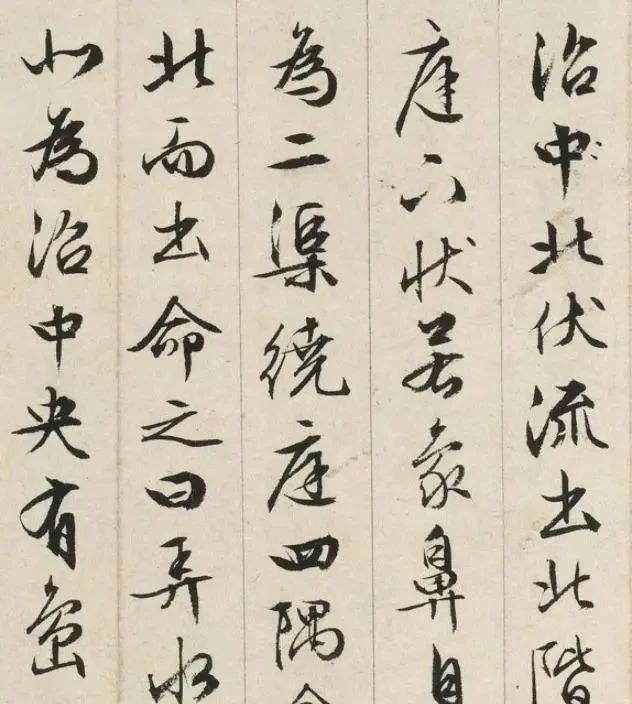 沼中北伏流出北階
庭下狀若象鼻自
為二渠繞庭四隅
北而出命之曰弄水
北為沼中央有島